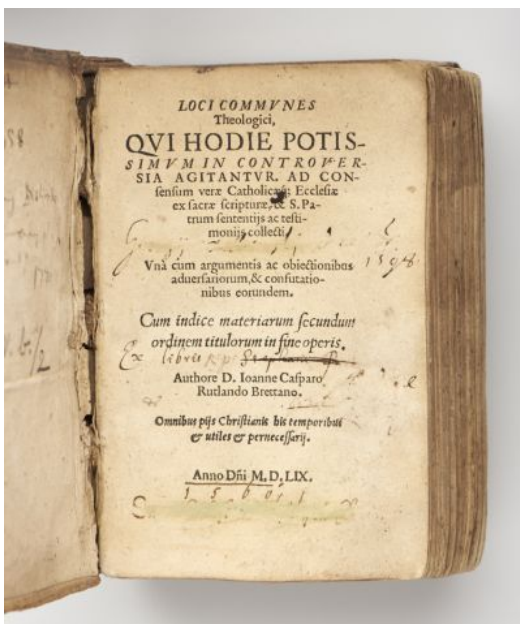 LOCI COMMVNES
Theologici,
QVI HODIE POTIS-
SIMVM IN CONTROVER-
SIA AGITANTVR. AD CON-
sensum veræ Catholicæq; Ecclesiæ
ex sacræ scripturæ, & S. Pa-
trum sententijs ac testi-
monijs collecti,
Vnà cum argumentis ac obiectionibus
1598
aduersariorum, & confutatio-
nibus eorundem.
Cum indice materiarum secundum
ordinem titulorum in fine operis.
Ex libris
Authore D. Ioanne Casparo
Rutlando Brettano.
Omnibus pijs Christianis his temporibus
& utiles & pernecessarij.
Anno Dñi M. D. LIX.